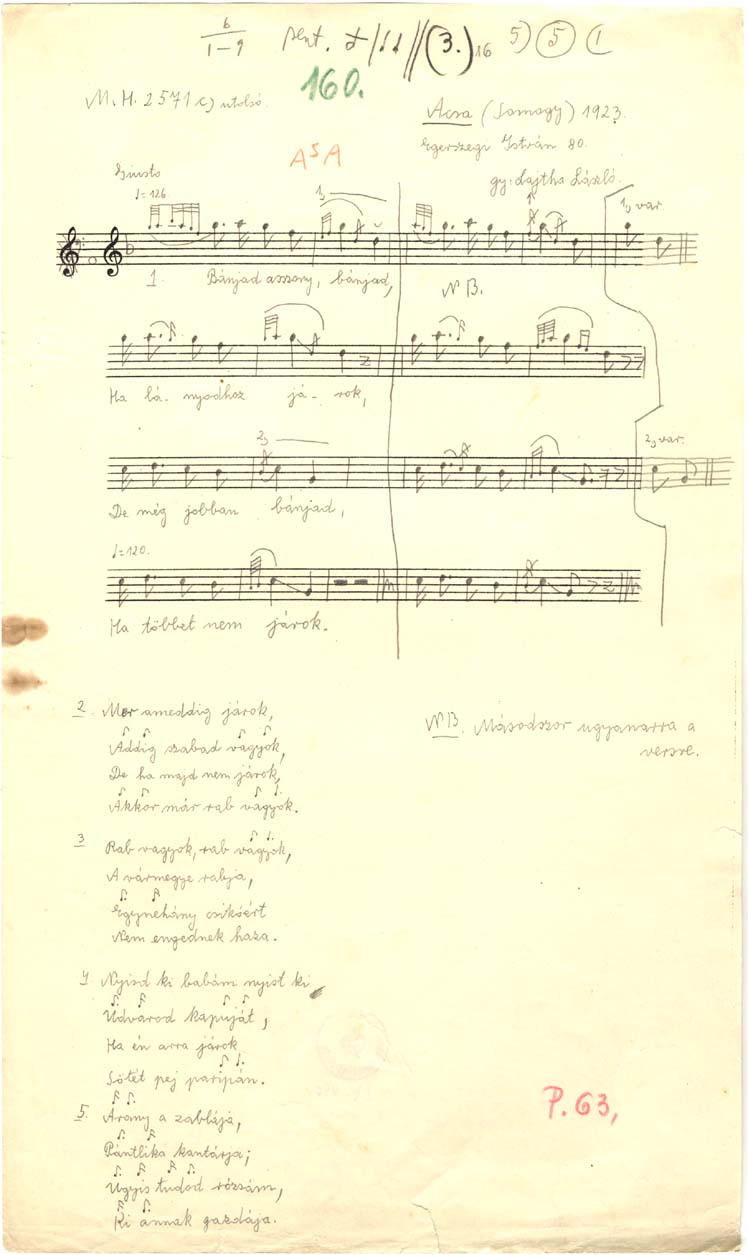 6
1-9
pent.
(3.) 16
5) 5 1
160.
M. H. 2571 c) utolsó.
Acsa (Somogy) 1923.
Egerszegi István 80.
gy: Lajtha László.
A5A
Giusto
♩=126.
1,
1, var.
1. Bánjad asszony, bánjad,
NB.
Ha lá- nyodhoz já- rok,
2,
2, var.
De még jobban bánjad,
♩=120.
Ha többet nem járok.
2. Mer ameddig járok,
Addig szabad vagyok,
De ha majd nem járok,
Akkor már rab vagyok.
NB. Másodszor ugyanarra a
versre.
3 Rab vagyok, rab vagyok,
A vármegye rabja,
Egynehány csikóért
Nem engednek haza.
4 Nyisd ki babám nyist ki
Udvarod kapuját,
Ha én arra járok
Sötét pej paripán.
5. Arany a zablája,
Pántlika kantárja;
Ugyis tudod rózsám,
Ki annak gazdája.
P. 63,